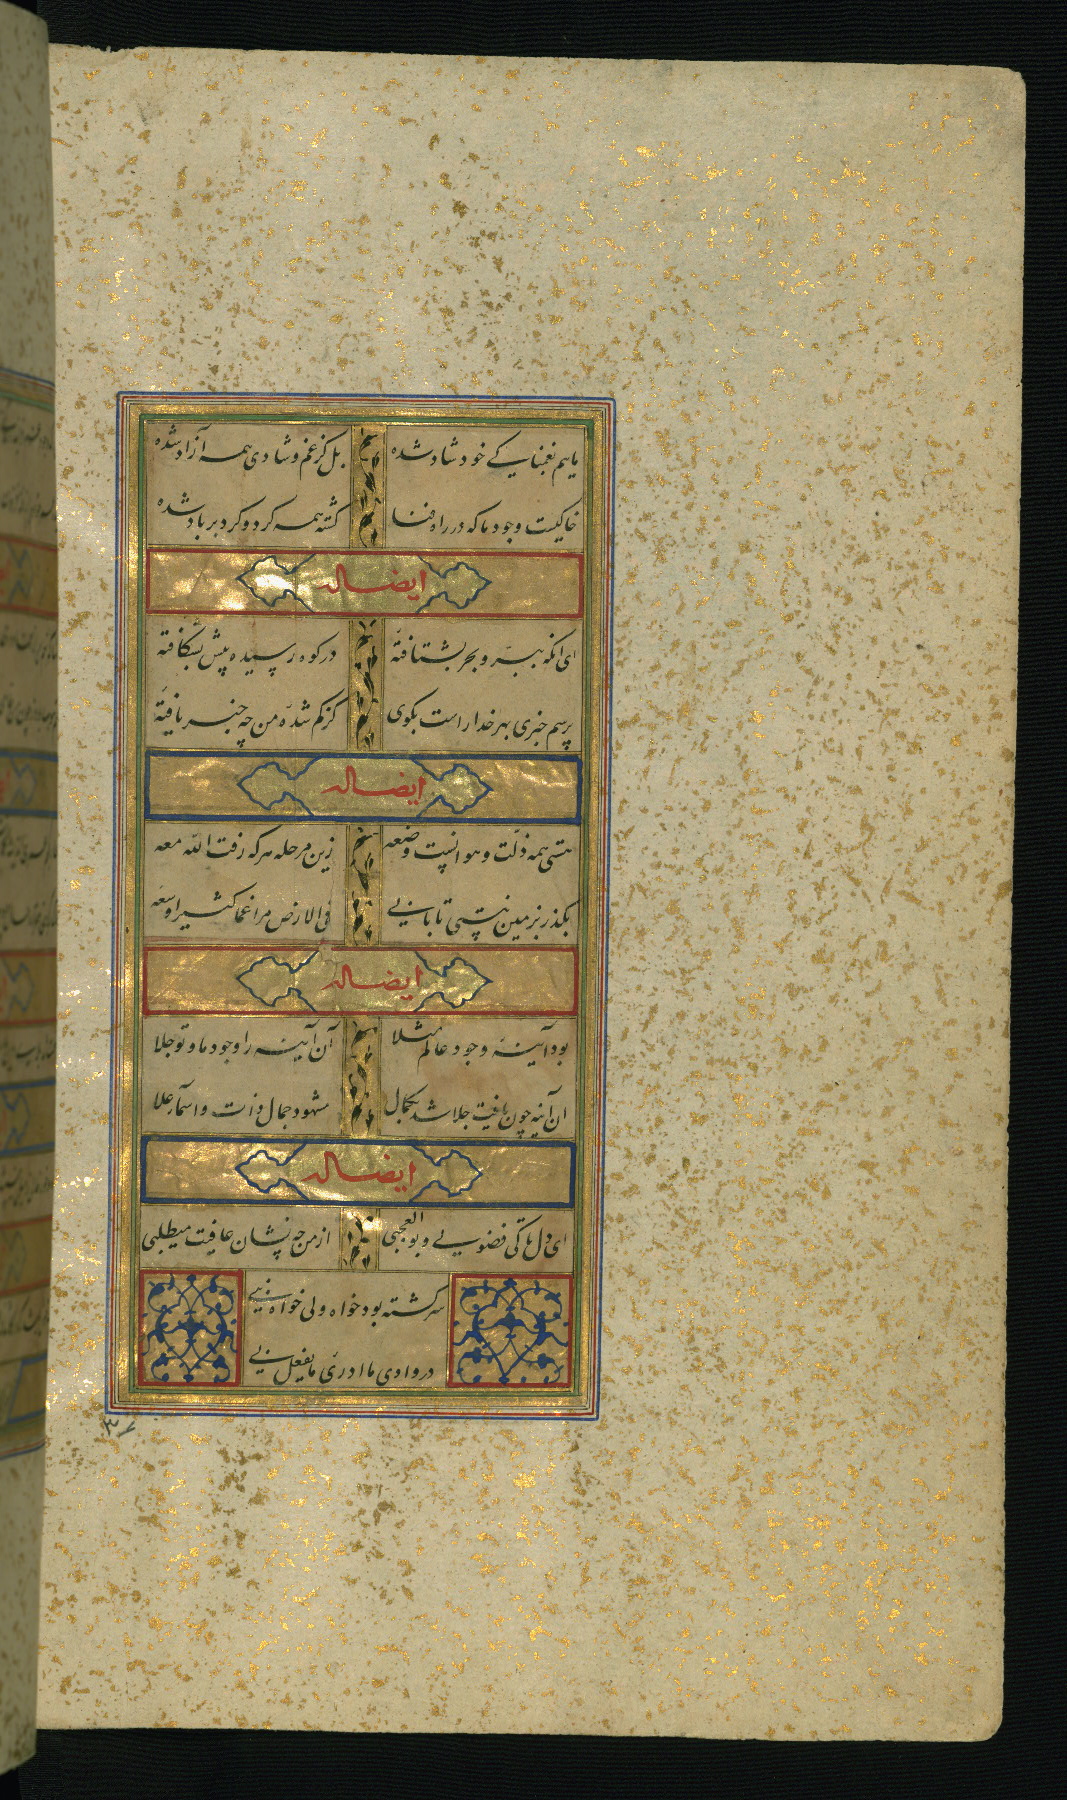 ماییم بغمناکی خود شاد شده بل کز غم و شادی همه آزاد شده
خاکیست وجود ما که در راه فنا گشته همه گرد و گرد بر باد شده
ایضاله
ای آنکه ببر و بحر بشتافتهٔ در کوه رسیده پیش بشکافته
پرسم خبری بهر خدا راست بگوی کز گم شدهٔ من چه خبر یافتهٔ
ایضاله
هستی همه ذلّت و هوانیست وضعه زین مرحله هر که رفت الله معه
بگذر بزمین نیستی تا یابی فی الارض مراغما کثیرا وسعه
ایضاله
بود آینهٔ وجود عالم مثلا آن آینه را وجود ما و تو جلا
آن آینه چون یافت جلا شد بکمال مشهود جمال ذات و اسمآء علا
ایضاله
ای دل تا کی فضولی و بوالعجبی از من چه نشان عافیت میطلبی
سرگشته بود خواه ولی خواه نبی
در وادی ما ادری ما یفعل بی